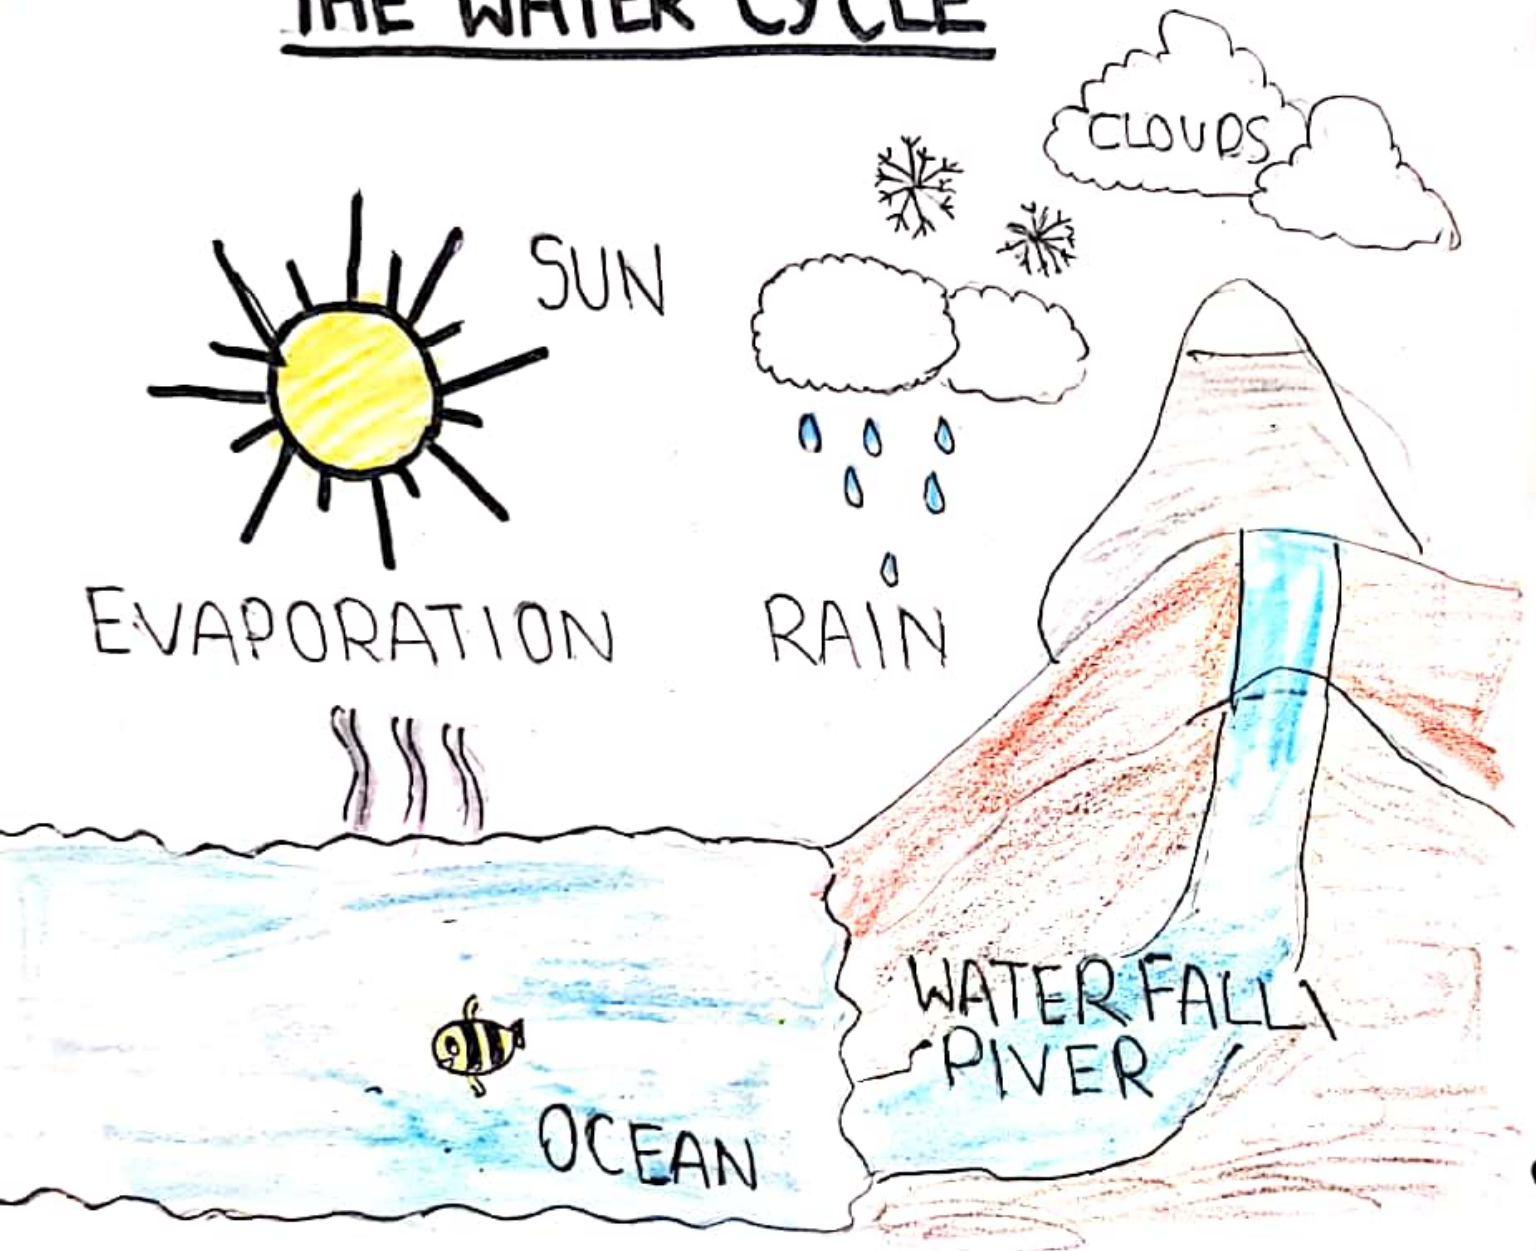 THE WATER CYCLE
CLOUDS
SUN
EVAPORATION
RAIN
WATERFALL
RIVER
OCEAN